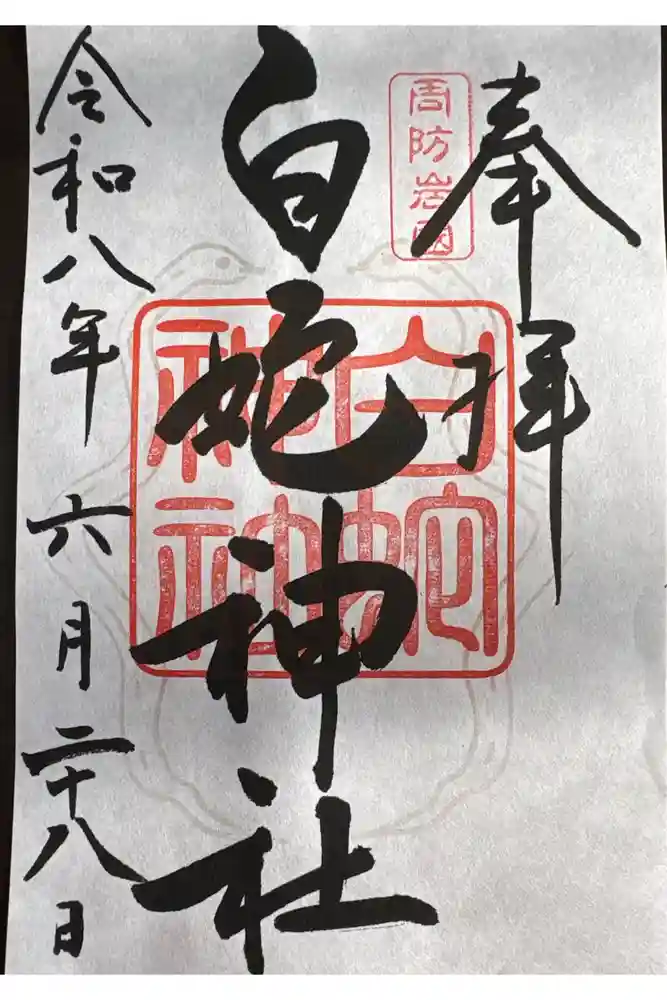 奉拝
周防岩國
白蛇神社
白蛇神社
令和八年六月二十八日